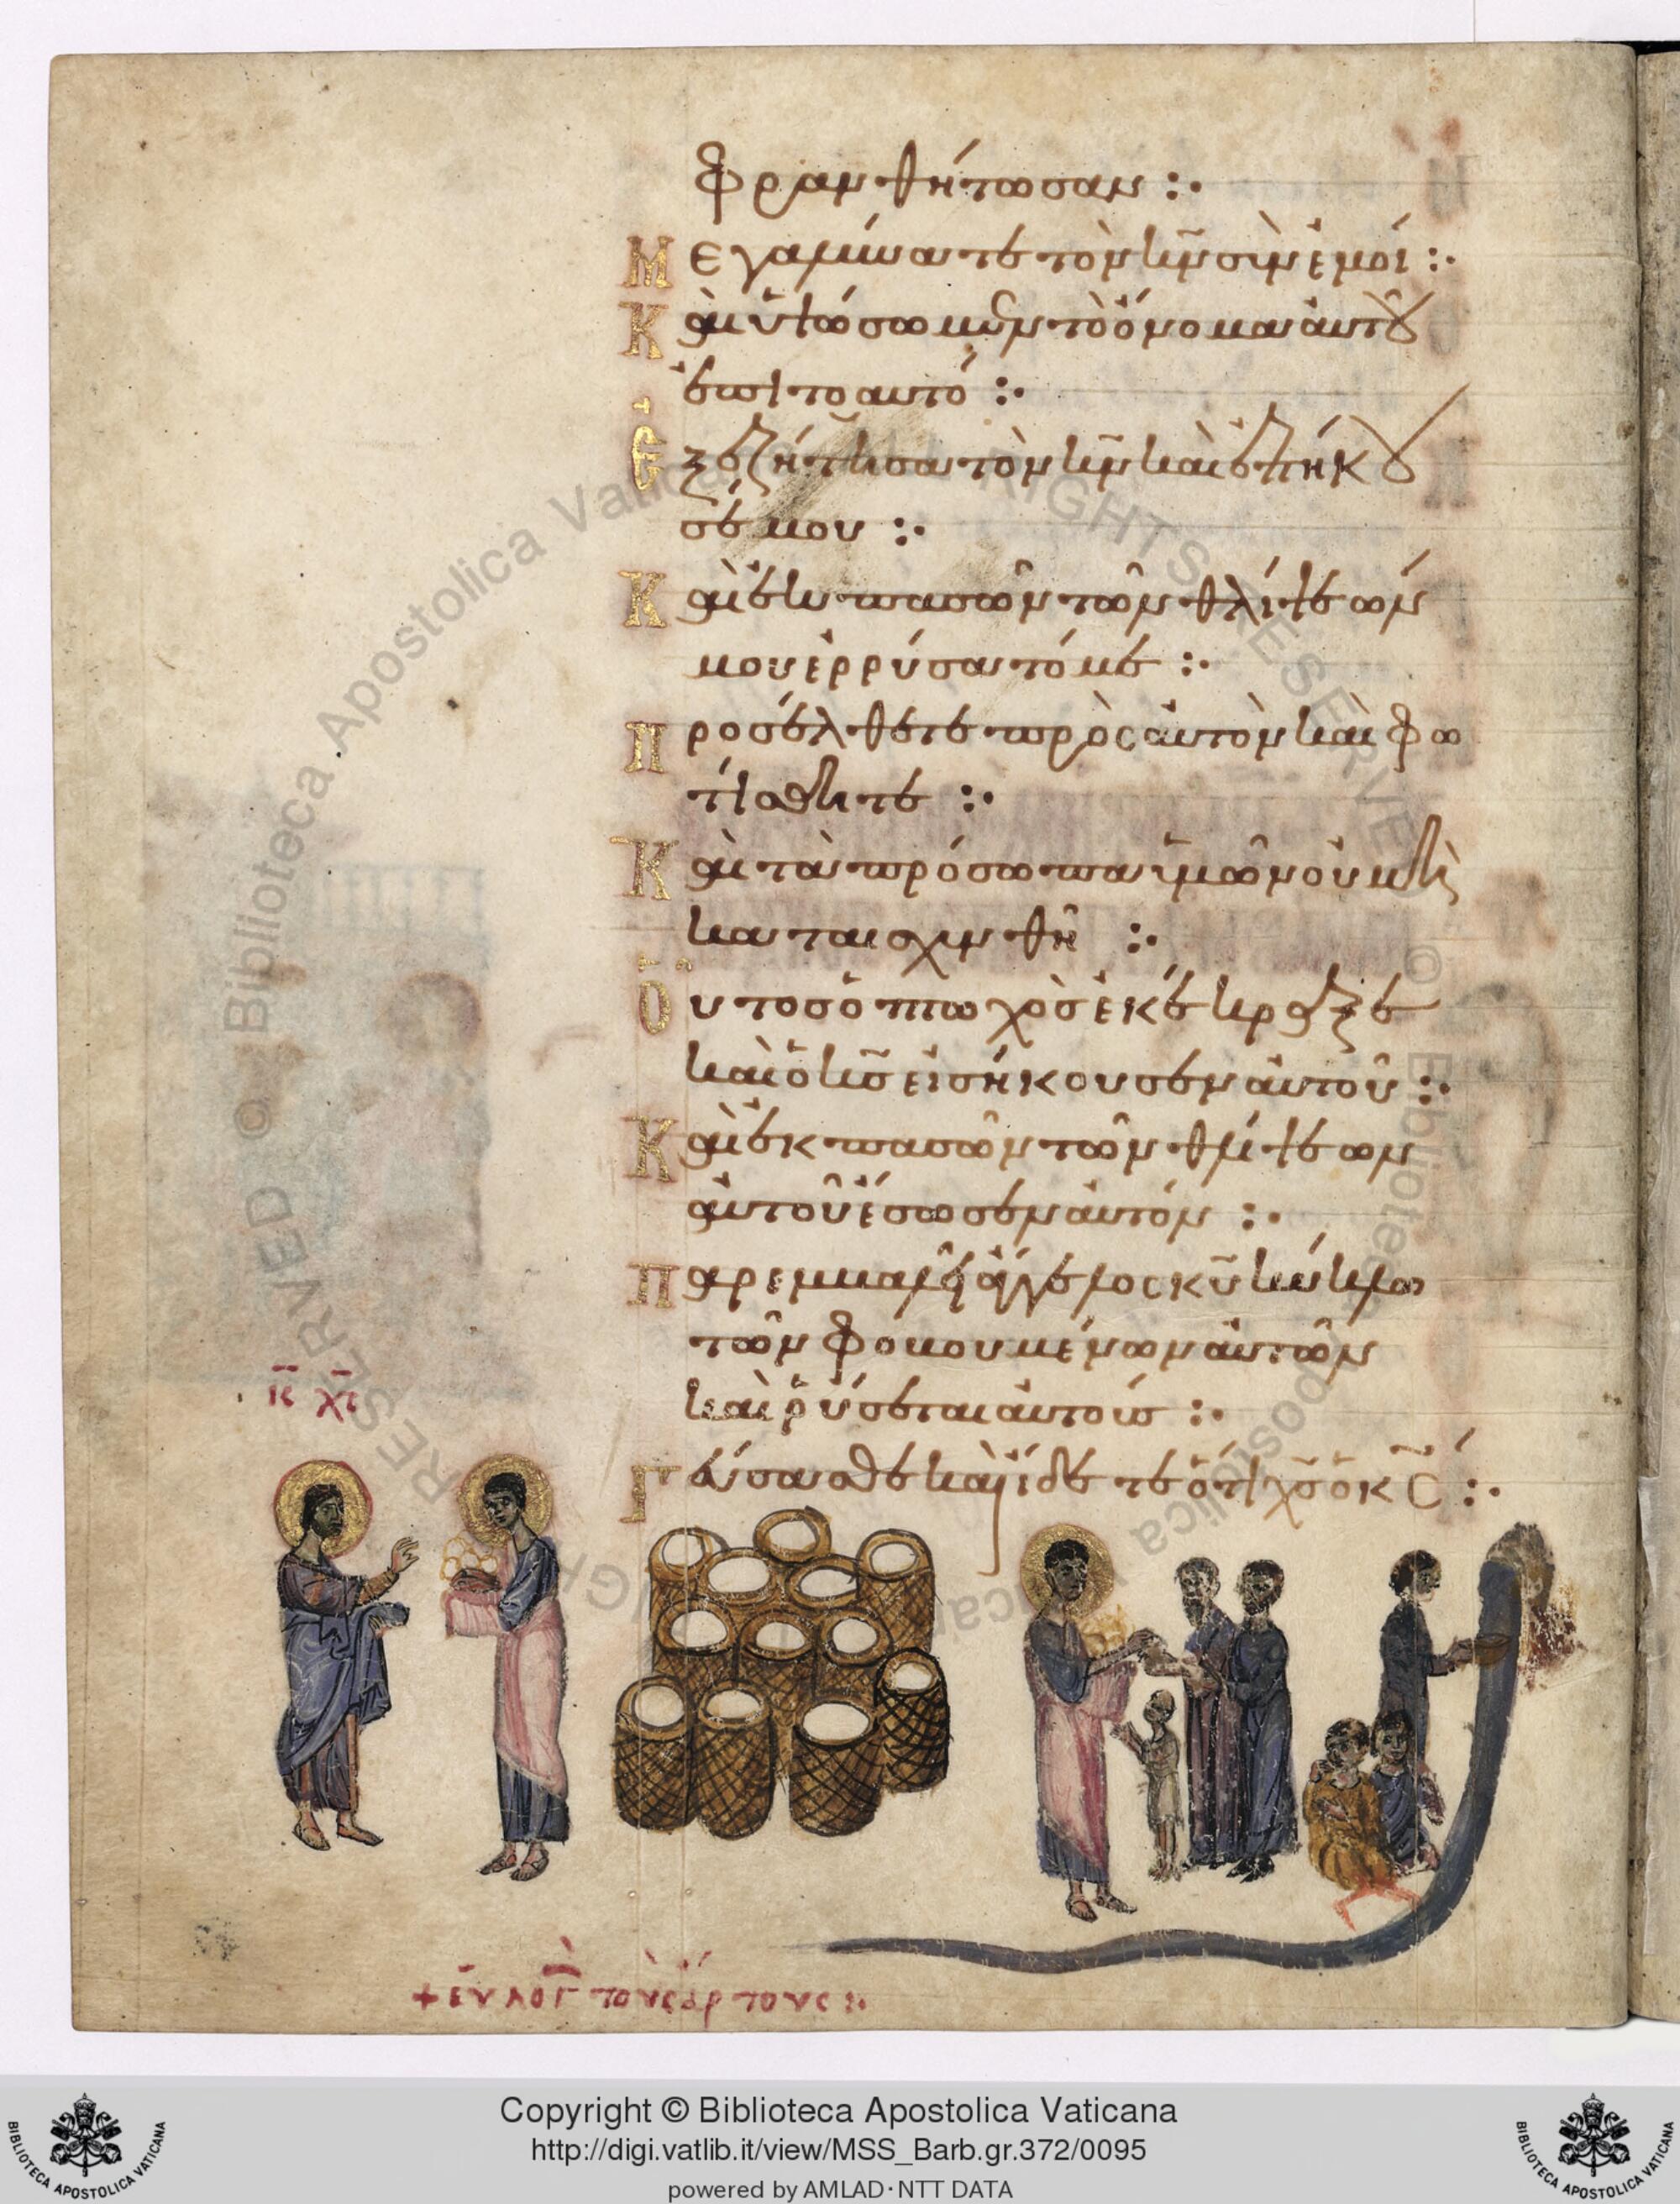 φρανθήτωσαν :·
Μεγαλύνατε τὸν κ̅ν̅ σὺν ἐμοί :·
Καὶ ὑψώσωμεν τὸ ὄνομα αὐτοῦ
ἐπὶ τὸ αυτό :·
Ἐξεζήτησα τὸν κ̅ν̅ καὶ ἐπήκου
σέ μου :·
Καὶ ἐκ πασῶν τῶν θλίψεών
μου ἐρρύσατό με :·
Προσέλθετε πρὸς αὐτὸν καὶ φω
τίσθητε :·
Καὶ τὰ πρόσωπα ὑμῶν οὐ μὴ
καταισχυνθῆ :·
Οὗτος ὁ πτωχὸς ἐκέκραξε
καὶ ὁ κ̅ς̅ εἰσήκουσεν αὐτοῦ :·
Καὶ ἐκ πασῶν τῶν θλίψεων
αὐτοῦ ἔσωσεν αὐτόν :·
Παρεμβαλεῖ ἄγγελος κ̅υ̅ κύκλω
τῶν φοβουμένων αὐτὸν
καὶ ῥύσεται αὐτούς :·
Γεύσασθε καὶ ἴδετε ὅτι χ̅ς̅ ὁ κ̅ς̅ :·
ι̅ς̅ χ̅ς̅
+ εὐλογ τοὺς ἄρτους :·
© Biblioteca Apostolica Vaticana ALL RIGHTS RESERVED © Biblioteca Apostolica Vaticana
Copyright © Biblioteca Apostolica Vaticana
http://digi.vatlib.it/view/MSS_Barb.gr.372/0095
powered by AMLAD·NTT DATA
BIBLIOTECA APOSTOLICA VATICANA
BIBLIOTECA APOSTOLICA VATICANA